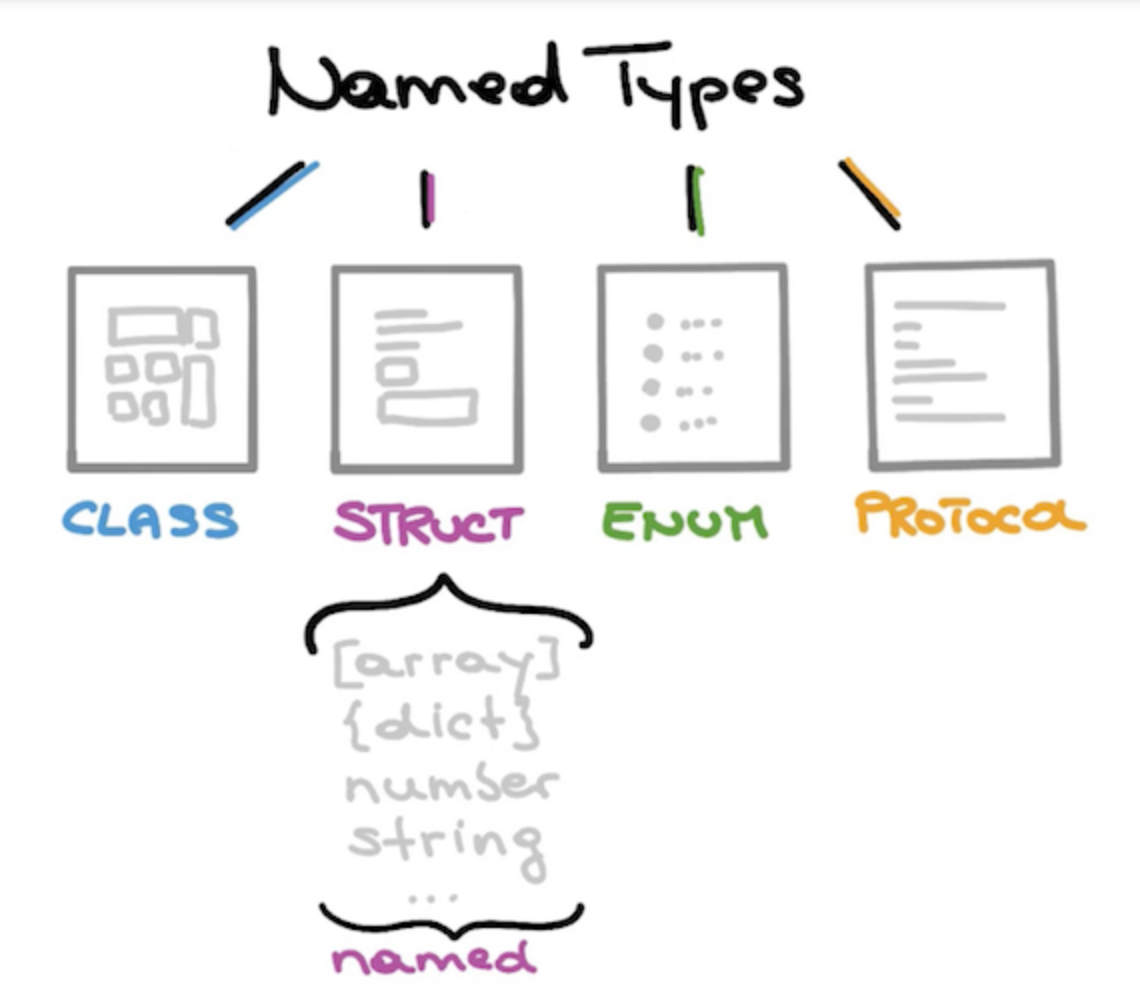 Named Types
CLASS STRUCT ENUM PROTOCOL
[array]
{dict}
number
string
...
named